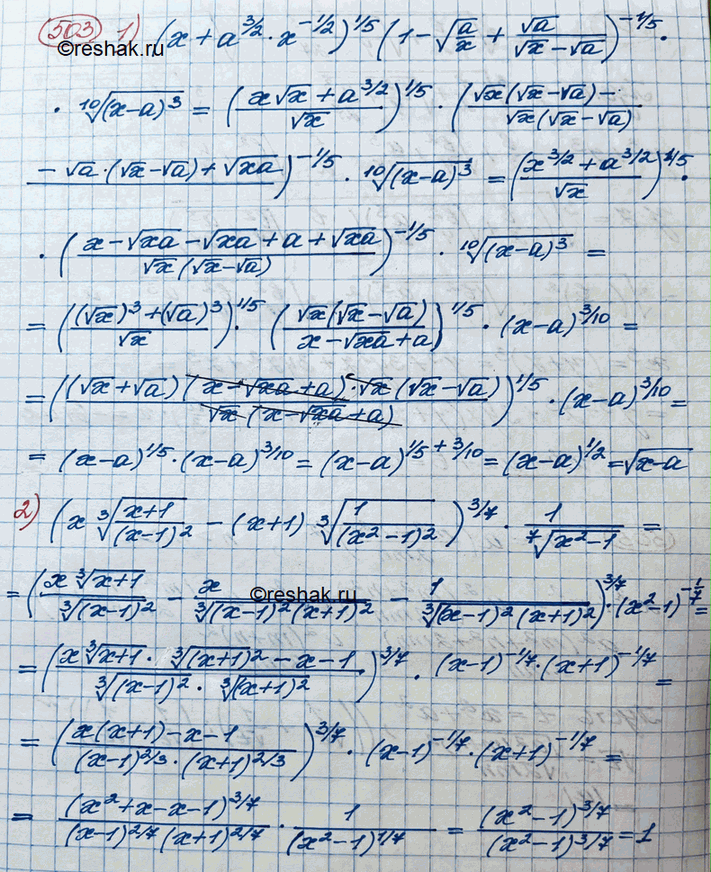 503 1) (x + a^{3/2} · x^{-1/2})^{1/5} (1 - √(a/x) + √a/(√x - √a))^{-1/5} ·
©reshak.ru
· ¹⁰√((x-a)^3) = ((x√x + a^{3/2})/√x)^{1/5} · ((√x(√x - √a) -)/(√x(√x - √a))
(- √a · (√x - √a) + √xa)/)^{-1/5} · ¹⁰√((x-a)^3) = ((x^{3/2} + a^{3/2})/√x)^{1/5} ·
· ((x - √xa - √xa + a + √xa)/(√x(√x - √a)))^{-1/5} · ¹⁰√((x-a)^3) =
= (((√x)^3 + (√a)^3)/√x)^{1/5} · ((√x(√x - √a))/(x - √xa + a))^{1/5} · (x-a)^{3/10} =
= (((√x + √a)(x - √xa + a) · √x(√x - √a))/(√x(x - √xa + a)))^{1/5} · (x-a)^{3/10} =
= (x-a)^{1/5} · (x-a)^{3/10} = (x-a)^{1/5 + 3/10} = (x-a)^{1/2} = √(x-a)
2) (x ∛((x+1)/(x-1)^2) - (x+1) ∛(1/(x²-1)^2))^{3/7} · 1/⁷√(x²-1) =
= ((x ∛(x+1))/∛((x-1)^2) - x/∛((x-1)^2(x+1)^2) - 1/∛((x-1)^2(x+1)^2))^{3/7} · (x²-1)^{-1/7} =
©reshak.ru
= ((x ∛(x+1) · ∛((x+1)^2) - x - 1)/(∛((x-1)^2) · ∛((x+1)^2)))^{3/7} · (x-1)^{-1/7} · (x+1)^{-1/7} =
= ((x(x+1) - x - 1)/((x-1)^{2/3} · (x+1)^{2/3}))^{3/7} · (x-1)^{-1/7} · (x+1)^{-1/7} =
= (x² + x - x - 1)^{3/7}/((x-1)^{2/7}(x+1)^{2/7}) · 1/(x²-1)^{1/7} = (x²-1)^{3/7}/(x²-1)^{3/7} = 1